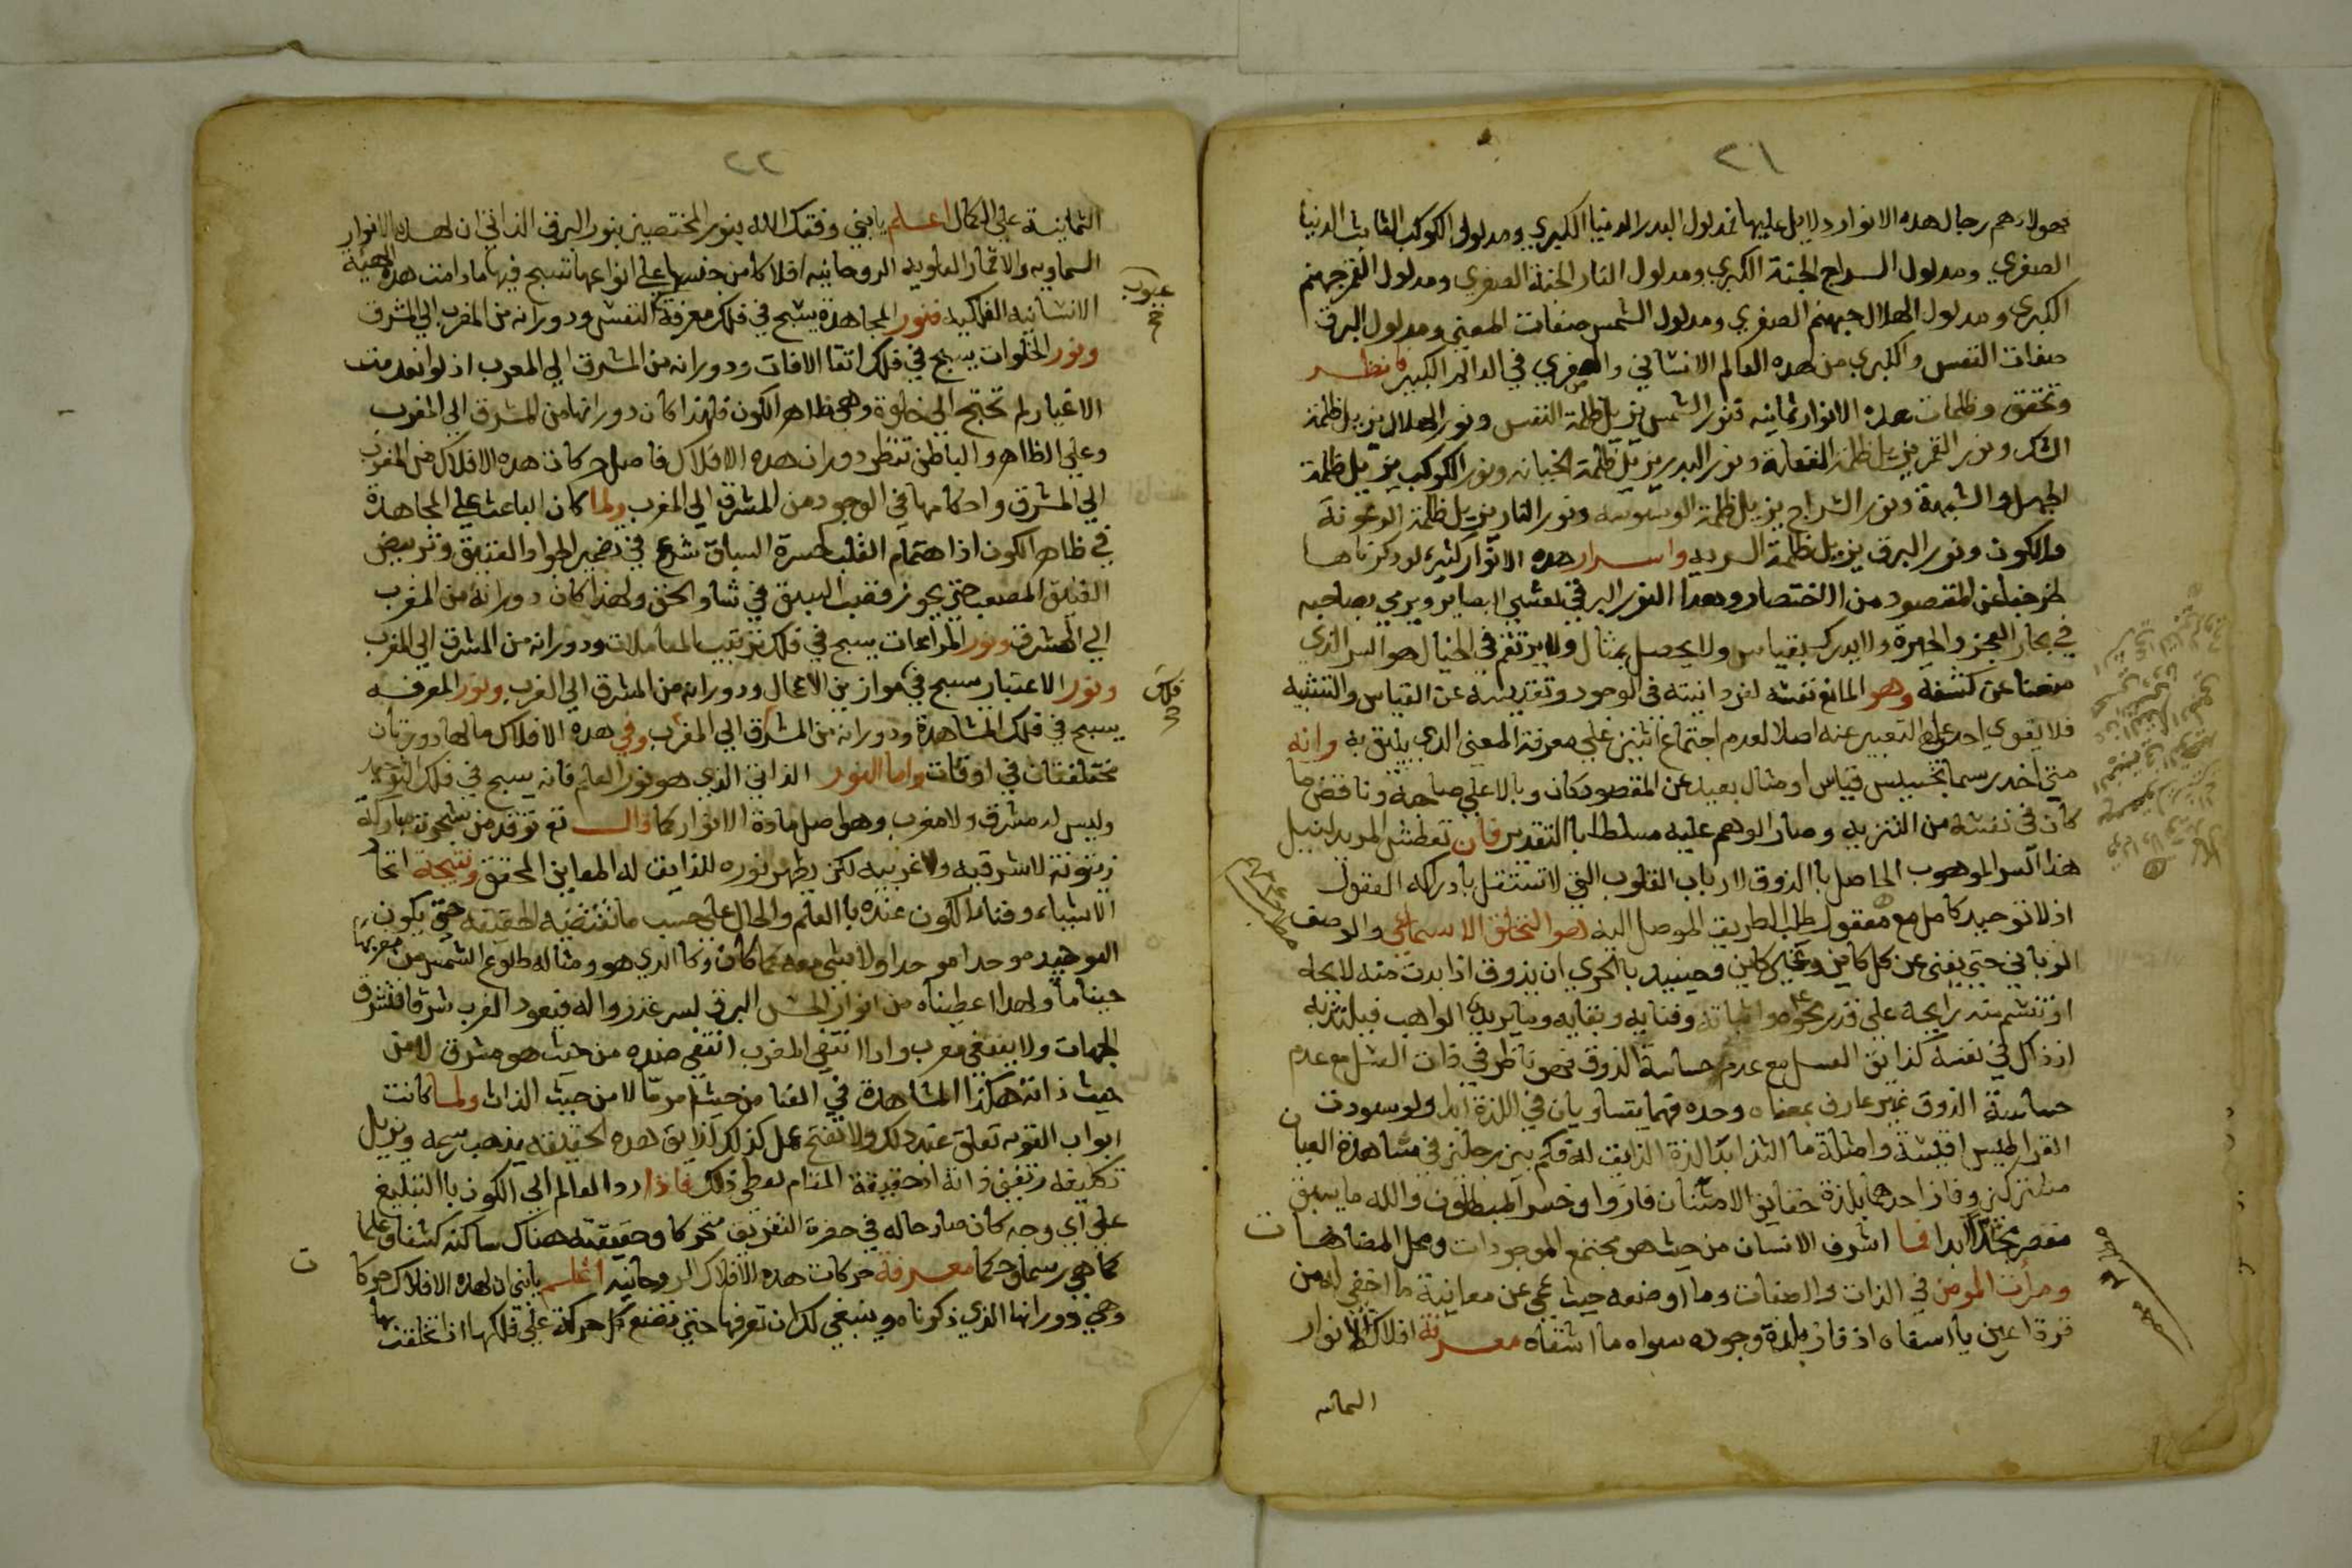 ٢١
فهولاء هم رجال هذه الانوار ودلايل عليها فمدلول البدر الدنيا الكبري ومدلول الكوكب الثابت الدنيا
الصغري ومدلول السراج الجنة الكبري ومدلول النار الجنة الصغري ومدلول القمر جهنم
الكبري ومدلول الهلال جهنم الصغري ومدلول الشمس صفات المعني ومدلول البرق
صفات النفس والكبري من هذه العالم الانساني والصغري في العالم الكبير فانظر
وتحقق وظلمات هذه الانوار ثمانيه فنور الشمس يزيل ظلمة النفس ونور الهلال يزيل ظلمة
الشك ونور القمر يزيل ظلمة الغفلة ونور البدر يزيل ظلمة الخيانه ونور الكوكب يزيل ظلمة
الجهل والشبهة ونور السراج يزيل ظلمة الوسوسه ونور النار يزيل ظلمة الرعونة
والكون ونور البرق يزيل ظلمة السريه واسرار هذه الانوار كثيره لو ذكرناها
لخرجنا عن المقصود من الاختصار وهذا النور البرقي يعشي البصاير ويرمي بصاحبه
في بحار العجز والحيرة ولا يدرك بقياس ولا يحصل بمثال ولا يرتقم في الخيال هو السر الذي
منعنا عن كشفه وهو المانع نفسه لفردانيته في الوجود وتقديسه عن القياس والتشبيه
فلا يقوي احد علي التعبير عنه اصلا لعدم اجتماع اثنين علي معرفة المعني الذي يليق به وانه
متي اخد رسما بحسب قياس او مثال بعيد عن المقصود كان وبالا علي صاحبه وناقض ما
كان في نفسه من التنزيه وصار الوهم عليه مسلطا باالتقدير فان تعطش المريد لنيل
هذا السر الموهوب الحاصل باالذوق لارباب القلوب التي لا تستقل بادراكه العقول
اذ لا توحيد كامل مع معقول طلب الطريق الموصل اليه وهو التخلق الاسماءي والوصف
الرباني حتي يفني عن كل كاين وغير كاين فحينيذ باالحري ان يذوق اذا بدت منه لايحه
او تنسم منه رايحة علي قدر محوه واثباته وفنايه وبقايه وما يريد الواهب فيلتذ به
اذ ذاك في نفسه كذايق العسل مع عدم حاسة الذوق فهو ناظر في ذات العسل مع عدم
حاسة الذوق غير عارف بمعناه وحده فهما يتساويان في اللذة ابدا ولو سودت
القراطيس اقيسة وامثلة ما التذ ابدا لذة الذايق له فكم بين رجلين في مشاهدة العيان
مشتركين وفاز احدهما بلذة حقايق الامتنان فازوا وخسر المبطلون والله ما يسبق
مقصر مجدا ابدا فما اشرف الانسان من حيث هو مجتمع الموجودات ومحل المضاهات
ومرات المومن في الذات والصفات وما اوضعه حيث عمي عن معاينة ما اخفي له من
قرة اعين يا اسفاه اذ فاز بلذة وجوده سواه ما اشقاه معرفة افلاك الانوار
الثمانيه
٢٢
الثمانية علي الكمال اعلم يابني وفقك الله بنور المختصين بنور البرق الذاتي ان لهذه الانوار
السماويه والاقمار العلويه الروحانيه افلاكا من جنسها علي انواعها تسبح فيها ما دامت هذه الهيئه
الانسانيه الفلكيه فنور المجاهدة يسبح في فلك معرفة النفس ودورانه من المغرب الي المشرق
ونور الخلوات يسبح في فلك اتقا الافات ودورانه من المشرق الي المغرب اذ لو انعدمت
الاغيار لم تحتج الي خلوة وهي ظاهر الكون فلهذا كان دورانها من المشرق الي المغرب
وعلي الظاهر والباطن تنظر دوران هذه الافلاك فاصل حركات هذه الافلاك من المغرب
الي المشرق واحكامها في الوجود من المشرق الي المغرب ولما كان الباعث علي المجاهدة
في ظاهر الكون اذا اهتمام القلب لحسرة السباق شرع في تضمير الجواد العتيق وترييض
الفلق المصعب حتي يحوز قصب السبق في شاو الحق ولهذا كان دورانه من المغرب
الي المشرق ونور المراعات يسبح في فلك ترتيب المعاملات ودورانه من المشرق الي المغرب
ونور الاعتبار يسبح في موازين الاعمال ودورانه من المشرق الي الغرب ونور المعرفه
يسبح في فلك المشاهدة ودورانه من المشرق الي المغرب وفي هذه الافلاك ما لها دورتان
مختلفتان في اوقات واما النور الذاتي الذي هو نور العلم فانه يسبح في فلك التوحيد
وليس له مشرق ولا مغرب وهو اصل مادة الانوار كما قال تع توقد من شجرة مباركة
زيتونة لا شرقيه ولا غربيه لكن يظهر نوره للذايق له المعاين المحقق ونتيجة اتحاد
الاشياء وفناء الكون عنده باالعلم والحال علي حسب ما تقتضيه الحقيقه حتي يكون
التوحيد موحدا موحدا ولا شي معه كما كان وكما الذي هو ومثاله طلوع الشمس من مغربها
حينا ما ولهذا اعطيناه من انوار الحس البرق لسرعة زواله فيعود الغرب شرقا فتشرق
الجهات ولا يبقي مغرب واذا انتفي المغرب انتفي ضده من حيث هو مشرق لا من
حيث ذاته هكذا المشاهدة في الفنا من حيث امر ما لا من حيث الذات ولما كانت
ابواب التوبه تغلق عند ذلك ولا تفتح عمل كذلك لذايق هذه الحقيقه يذهب رسمه ويزيل
تكليفه وتفني ذاته اذ حقيقة المقام يعطي ذلك فاذا رد العالم الي الكون باالتبليغ
علي اي وجه كان صار حاله في حضرة التفريق متحركا وحقيقته هناك ساكنه كشفا وعلما
كما هي رسما وحكما معرفة حركات هذه الافلاك الروحانيه اعلم يابني ان لهذه الافلاك حركات
وهي دورانها الذي ذكرناه وينبغي لك ان تعرفها حتي تضع كل حركة علي فلكها اذا تخلقت بها
عيوب
فلك